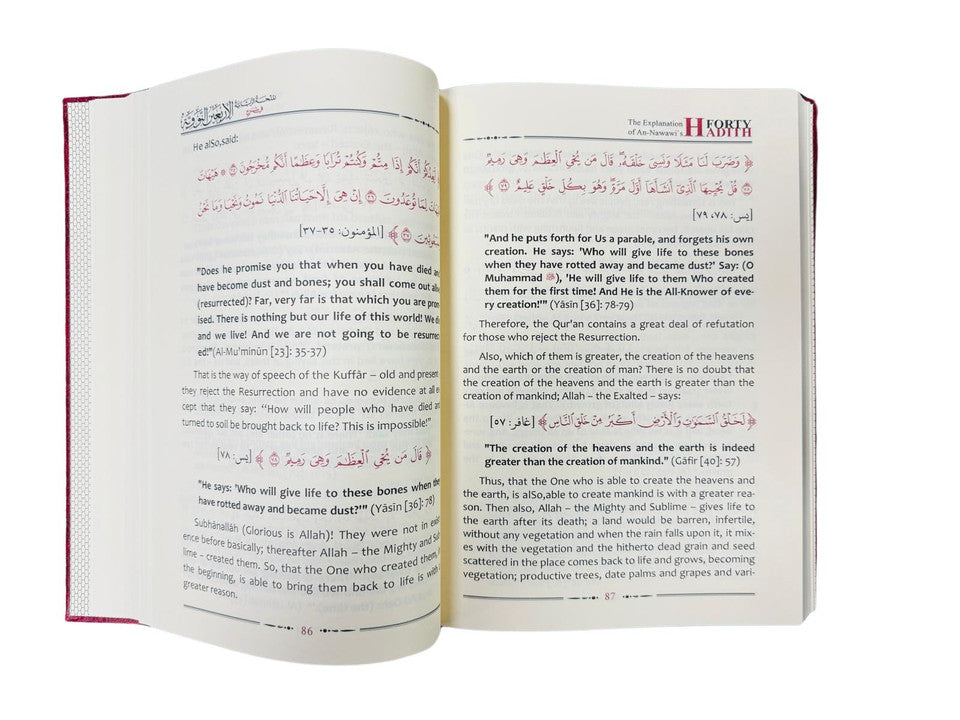 الأربعين النووية
He alSo,said:
أَيَعِدُكُمْ أَنَّكُمْ إِذَا مِتُّمْ وَكُنتُمْ تُرَابًا وَعِظَامًا أَنَّكُم مُّخْرَجُونَ ۝ ۞ هَيْهَاتَ
هَيْهَاتَ لِمَا تُوعَدُونَ ۝ إِنْ هِيَ إِلَّا حَيَاتُنَا الدُّنْيَا نَمُوتُ وَنَحْيَا وَمَا نَحْنُ
بِمَبْعُوثِينَ ۝ ﴾ [المؤمنون: ٣٥-٣٧]
"Does he promise you that when you have died and
have become dust and bones; you shall come out alive
(resurrected)? Far, very far is that which you are prom
ised. There is nothing but our life of this world! We die
and we live! And we are not going to be resurrect
ed!"(Al-Mu'minūn [23]: 35-37)
That is the way of speech of the Kuffār – old and present
they reject the Resurrection and have no evidence at all ex
cept that they say: "How will people who have died and
turned to soil be brought back to life? This is impossible!"
﴿ قَالَ مَن يُحْيِ الْعِظَامَ وَهِيَ رَمِيمٌ ۝ ﴾ [يس: ٧٨]
"He says: 'Who will give life to these bones when they
have rotted away and became dust?'" (Yāsīn [36]: 78)
Subhānallāh (Glorious is Allah)! They were not in exist
ence before basically; thereafter Allah – the Mighty and Sub
lime – created them. So, that the One who created them, in
the beginning, is able to bring them back to life is with a
greater reason.
86
The Explanation
of An-Nawawi's
FORTY
HADITH
﴿ وَضَرَبَ لَنَا مَثَلًا وَنَسِيَ خَلْقَهُ ۖ قَالَ مَن يُحْيِ الْعِظَامَ وَهِيَ رَمِيمٌ
۝ قُلْ يُحْيِيهَا الَّذِي أَنشَأَهَا أَوَّلَ مَرَّةٍ ۖ وَهُوَ بِكُلِّ خَلْقٍ عَلِيمٌ ۝ ﴾
[يس: ٧٨، ٧٩]
"And he puts forth for Us a parable, and forgets his own
creation. He says: 'Who will give life to these bones
when they have rotted away and became dust?' Say: (O
Muhammad ﷺ), 'He will give life to them Who created
them for the first time! And He is the All-Knower of eve-
ry creation!'" (Yāsīn [36]: 78-79)
Therefore, the Qur'an contains a great deal of refutation
for those who reject the Resurrection.
Also, which of them is greater, the creation of the heavens
and the earth or the creation of man? There is no doubt that
the creation of the heavens and the earth is greater than the
creation of mankind; Allah – the Exalted – says:
﴿ لَخَلْقُ السَّمَاوَاتِ وَالْأَرْضِ أَكْبَرُ مِنْ خَلْقِ النَّاسِ ﴾ [غافر: ٥٧]
"The creation of the heavens and the earth is indeed
greater than the creation of mankind." (Gāfir [40]: 57)
Thus, that the One who is able to create the heavens and
the earth, is alSo,able to create mankind is with a greater rea-
son. Then also, Allah – the Mighty and Sublime – gives life to
the earth after its death; a land would be barren, infertile,
without any vegetation and when the rain falls upon it, it mix-
es with the vegetation and the hitherto dead grain and seed
scattered in the place comes back to life and grows, becoming
vegetation; productive trees, date palms and grapes and vari-
87